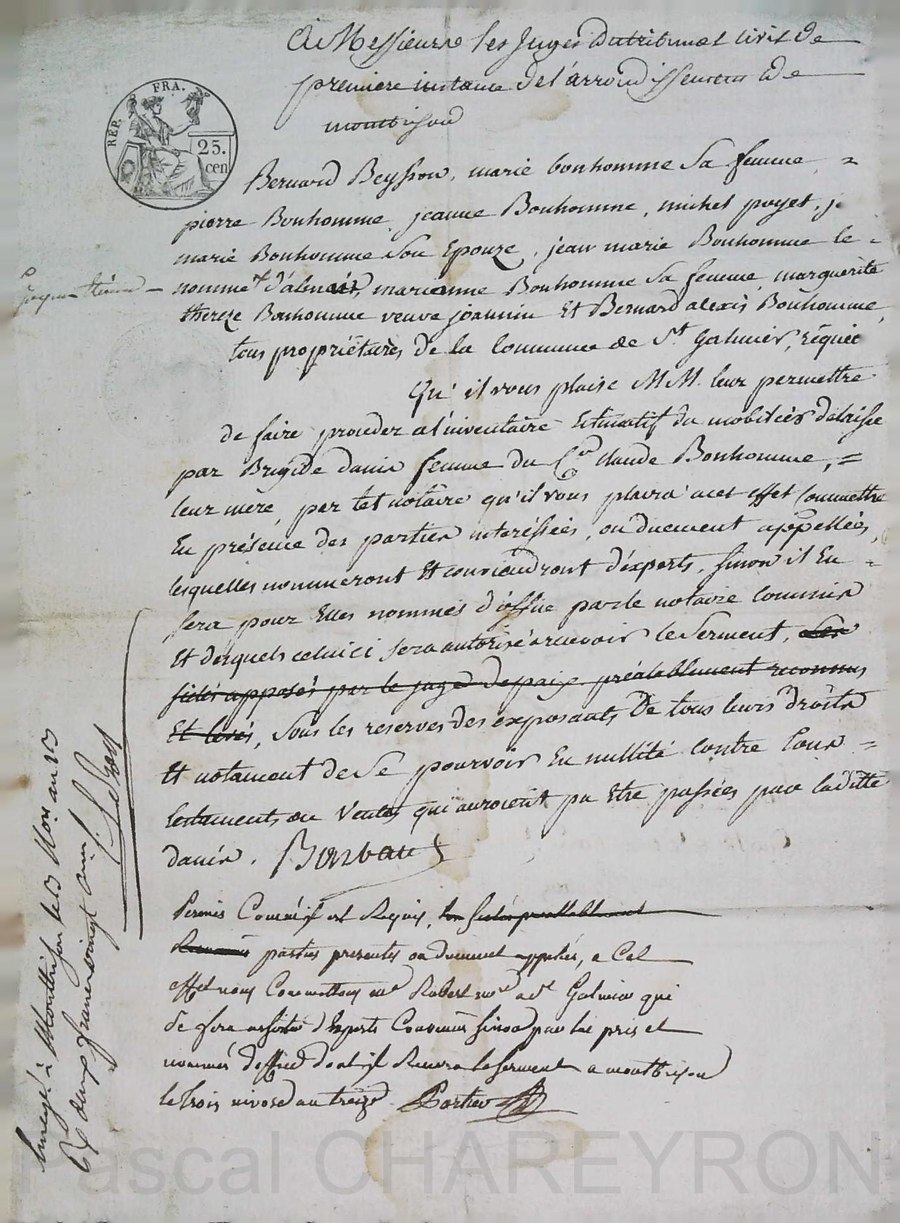 A Messieurs les Juges du tribunal civil de
premiere instance de l'arrondissement de
montbrison
REP. FRA.
25.
cen
Bernard Beysson, marie bonhomme sa femme, =
pierre Bonhomme, jeanne Bonhomme, michel poyet,
marie Bonhomme son Epouze, jean marie Bonhomme le =
nommé d'almais, marianne Bonhomme sa femme, marguerite
thereze Bonhomme veuve joannin Et Bernard alexis Bonhomme,
tous propriétaires de la Commune de St. Galmier,
Qu'il vous plaise MM. leur permettre
de faire proceder a l'inventaire Estimatif du mobilier delaissé
par Brigide danis femme du Claude Bonhomme, =
leur mere, par tel notaire qu'il vous plaira a cet effet Commettre
En présence des parties interessées, ou duement appellées,
lesquelles nommeront Et conviendront d'experts, sinon il En =
sera pour Elles nommés d'office par le notaire Commis
Et desquels celui ci sera autorisé a recevoir le Serment, les
scelés apposés par le juge de paix préalablement reconnus
Et levés, Sous les reserves des exposants De tous leurs droits
Et notament de Se pourvoir En nullité contre tous =
testaments ou Ventes qui auroient pu Etre passées par laditte
danis.
Permis Comme il est Requis, les scelés preallablement
Reconnus parties presentes ou duement appelées, a Cet
effet nous Commettons me Robert nre a St Galmier qui
se fera assister d'Experts Convenus sinon par lui pris et
nommés d'office dont il Recevra le serment a montbrison
le trois nivose an treize
Enregé. à Montbrison le 3 Nivse an 13
deux francs vingt
Pascal CHAREYRON